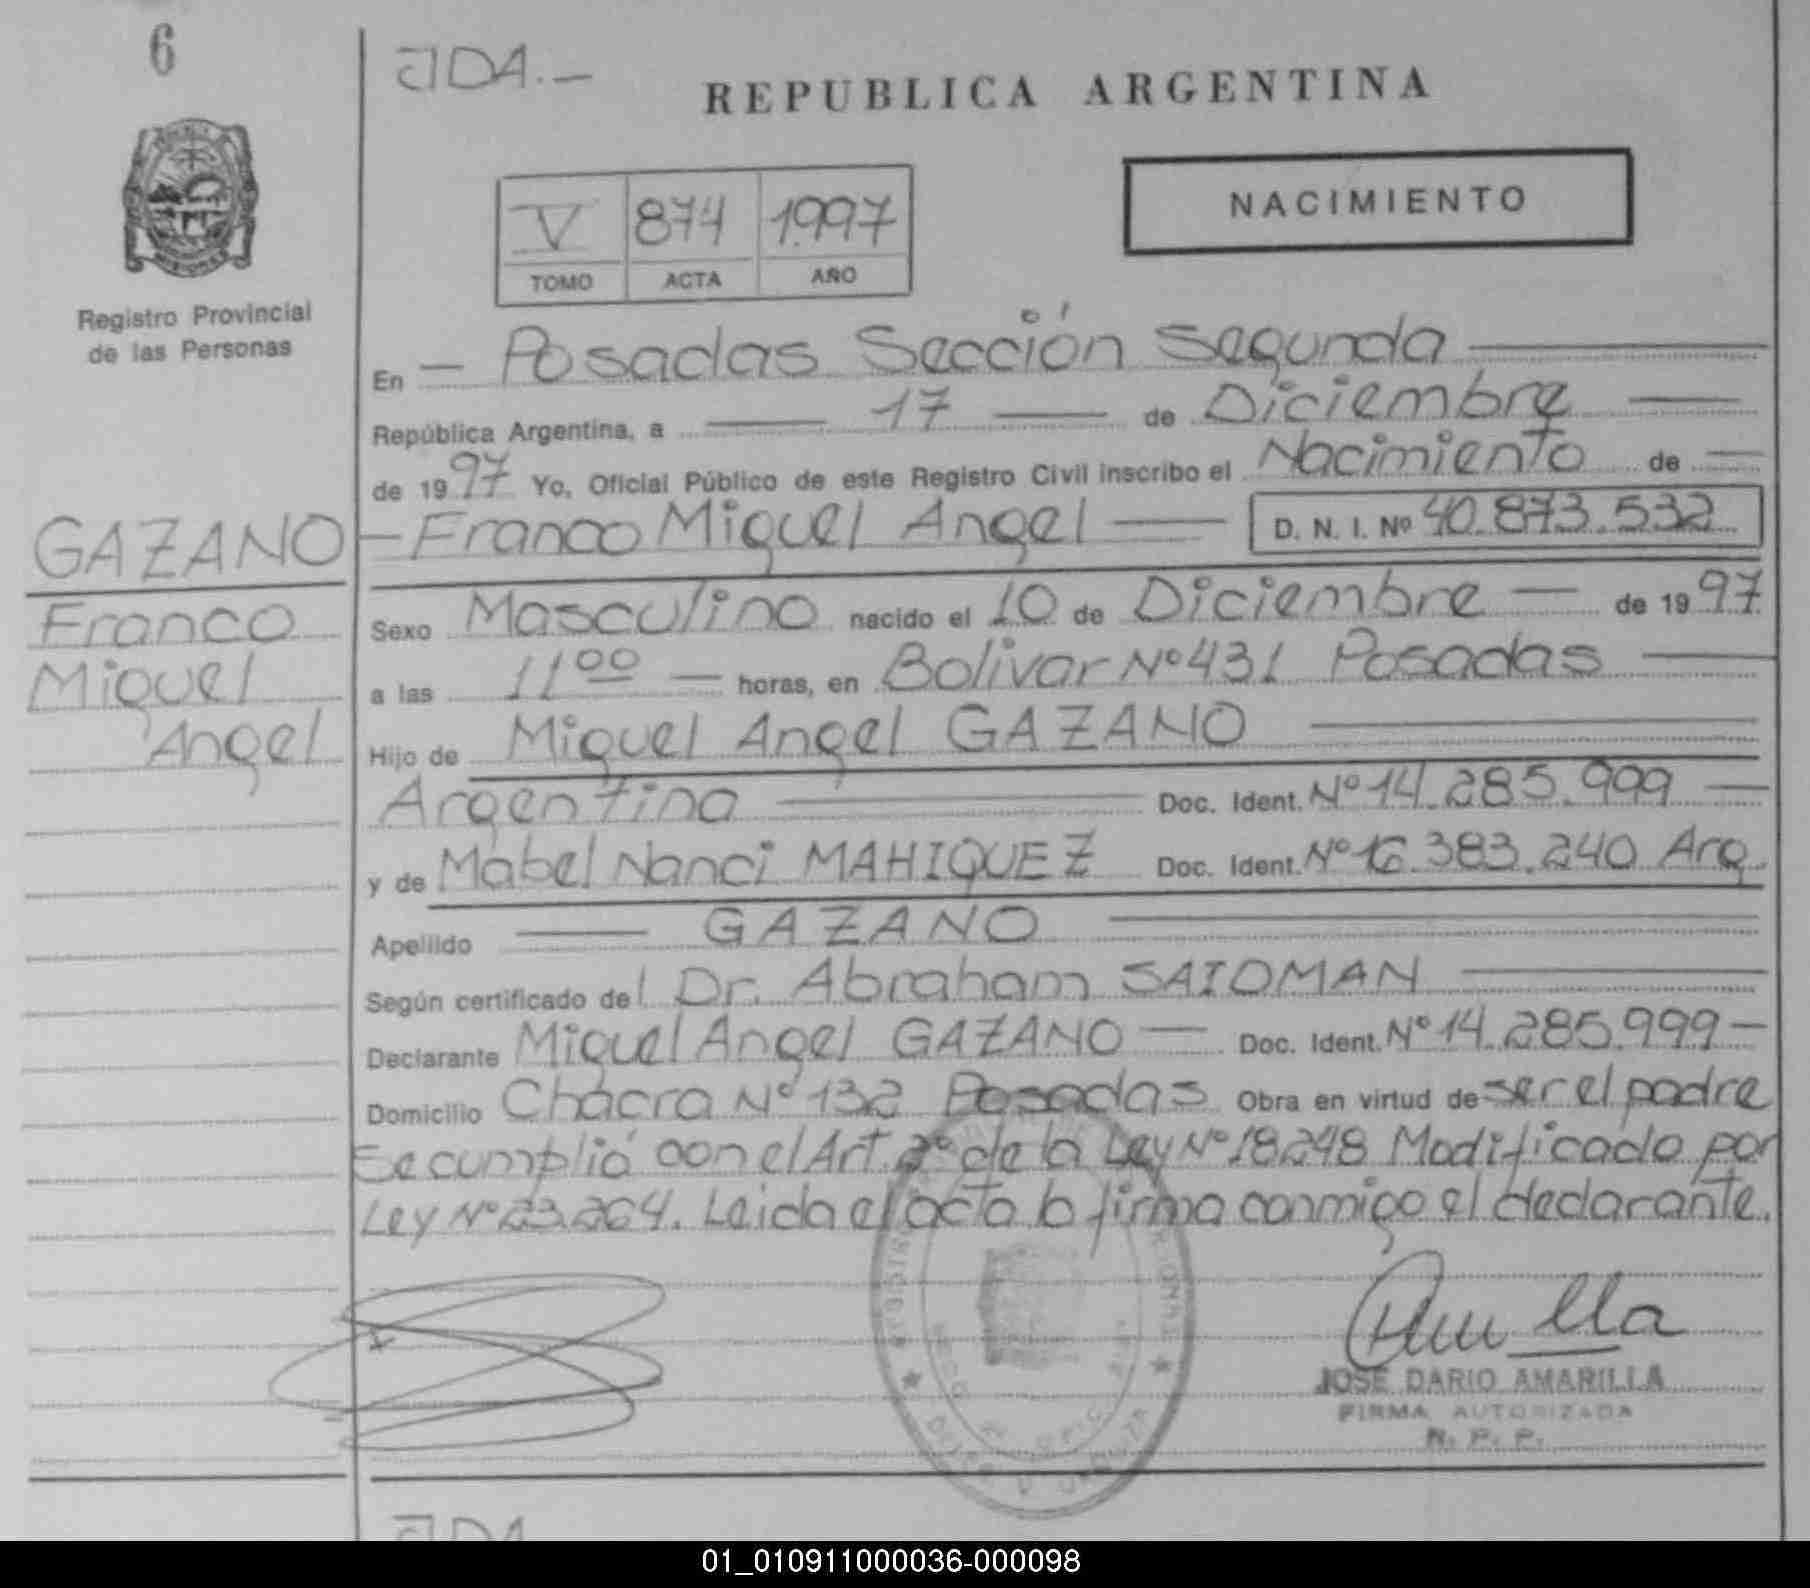 6
JDA.-
REPUBLICA ARGENTINA
NACIMIENTO
V 874 1997
TOMO ACTA AÑO
MISIONES
Registro Provincial
de las Personas
GAZANO
Franco
Miguel
Angel
En — Posadas Sección Segunda
República Argentina, a — 17 — de Diciembre —
de 1997 Yo, Oficial Público de este Registro Civil inscribo el Nacimiento de —
— Franco Miguel Angel — D. N. I. Nº 40.873.532
Sexo Masculino nacido el 10 de Diciembre — de 1997
a las 11 00 — horas, en Bolivar Nº 431 Posadas —
Hijo de Miguel Angel GAZANO —
Argentina — Doc. Ident. Nº 14.285.999 —
y de Mabel Nanci MAHIQUEZ Doc. Ident. Nº 16.383.240 Arg.
Apellido — GAZANO —
Según certificado del Dr. Abraham SAIDMAN —
Declarante Miguel Angel GAZANO — Doc. Ident. Nº 14.285.999 —
Domicilio Chacra Nº 132 Posadas Obra en virtud de ser el padre
Se cumplió con el Art. 2º de la Ley Nº 18248 Modificado por
Ley Nº 23.264. Leida el acta la firma conmigo el declarante.
JOSE DARIO AMARILLA
FIRMA AUTORIZADA
R. P. P.
JDA
01_010911000036-000098